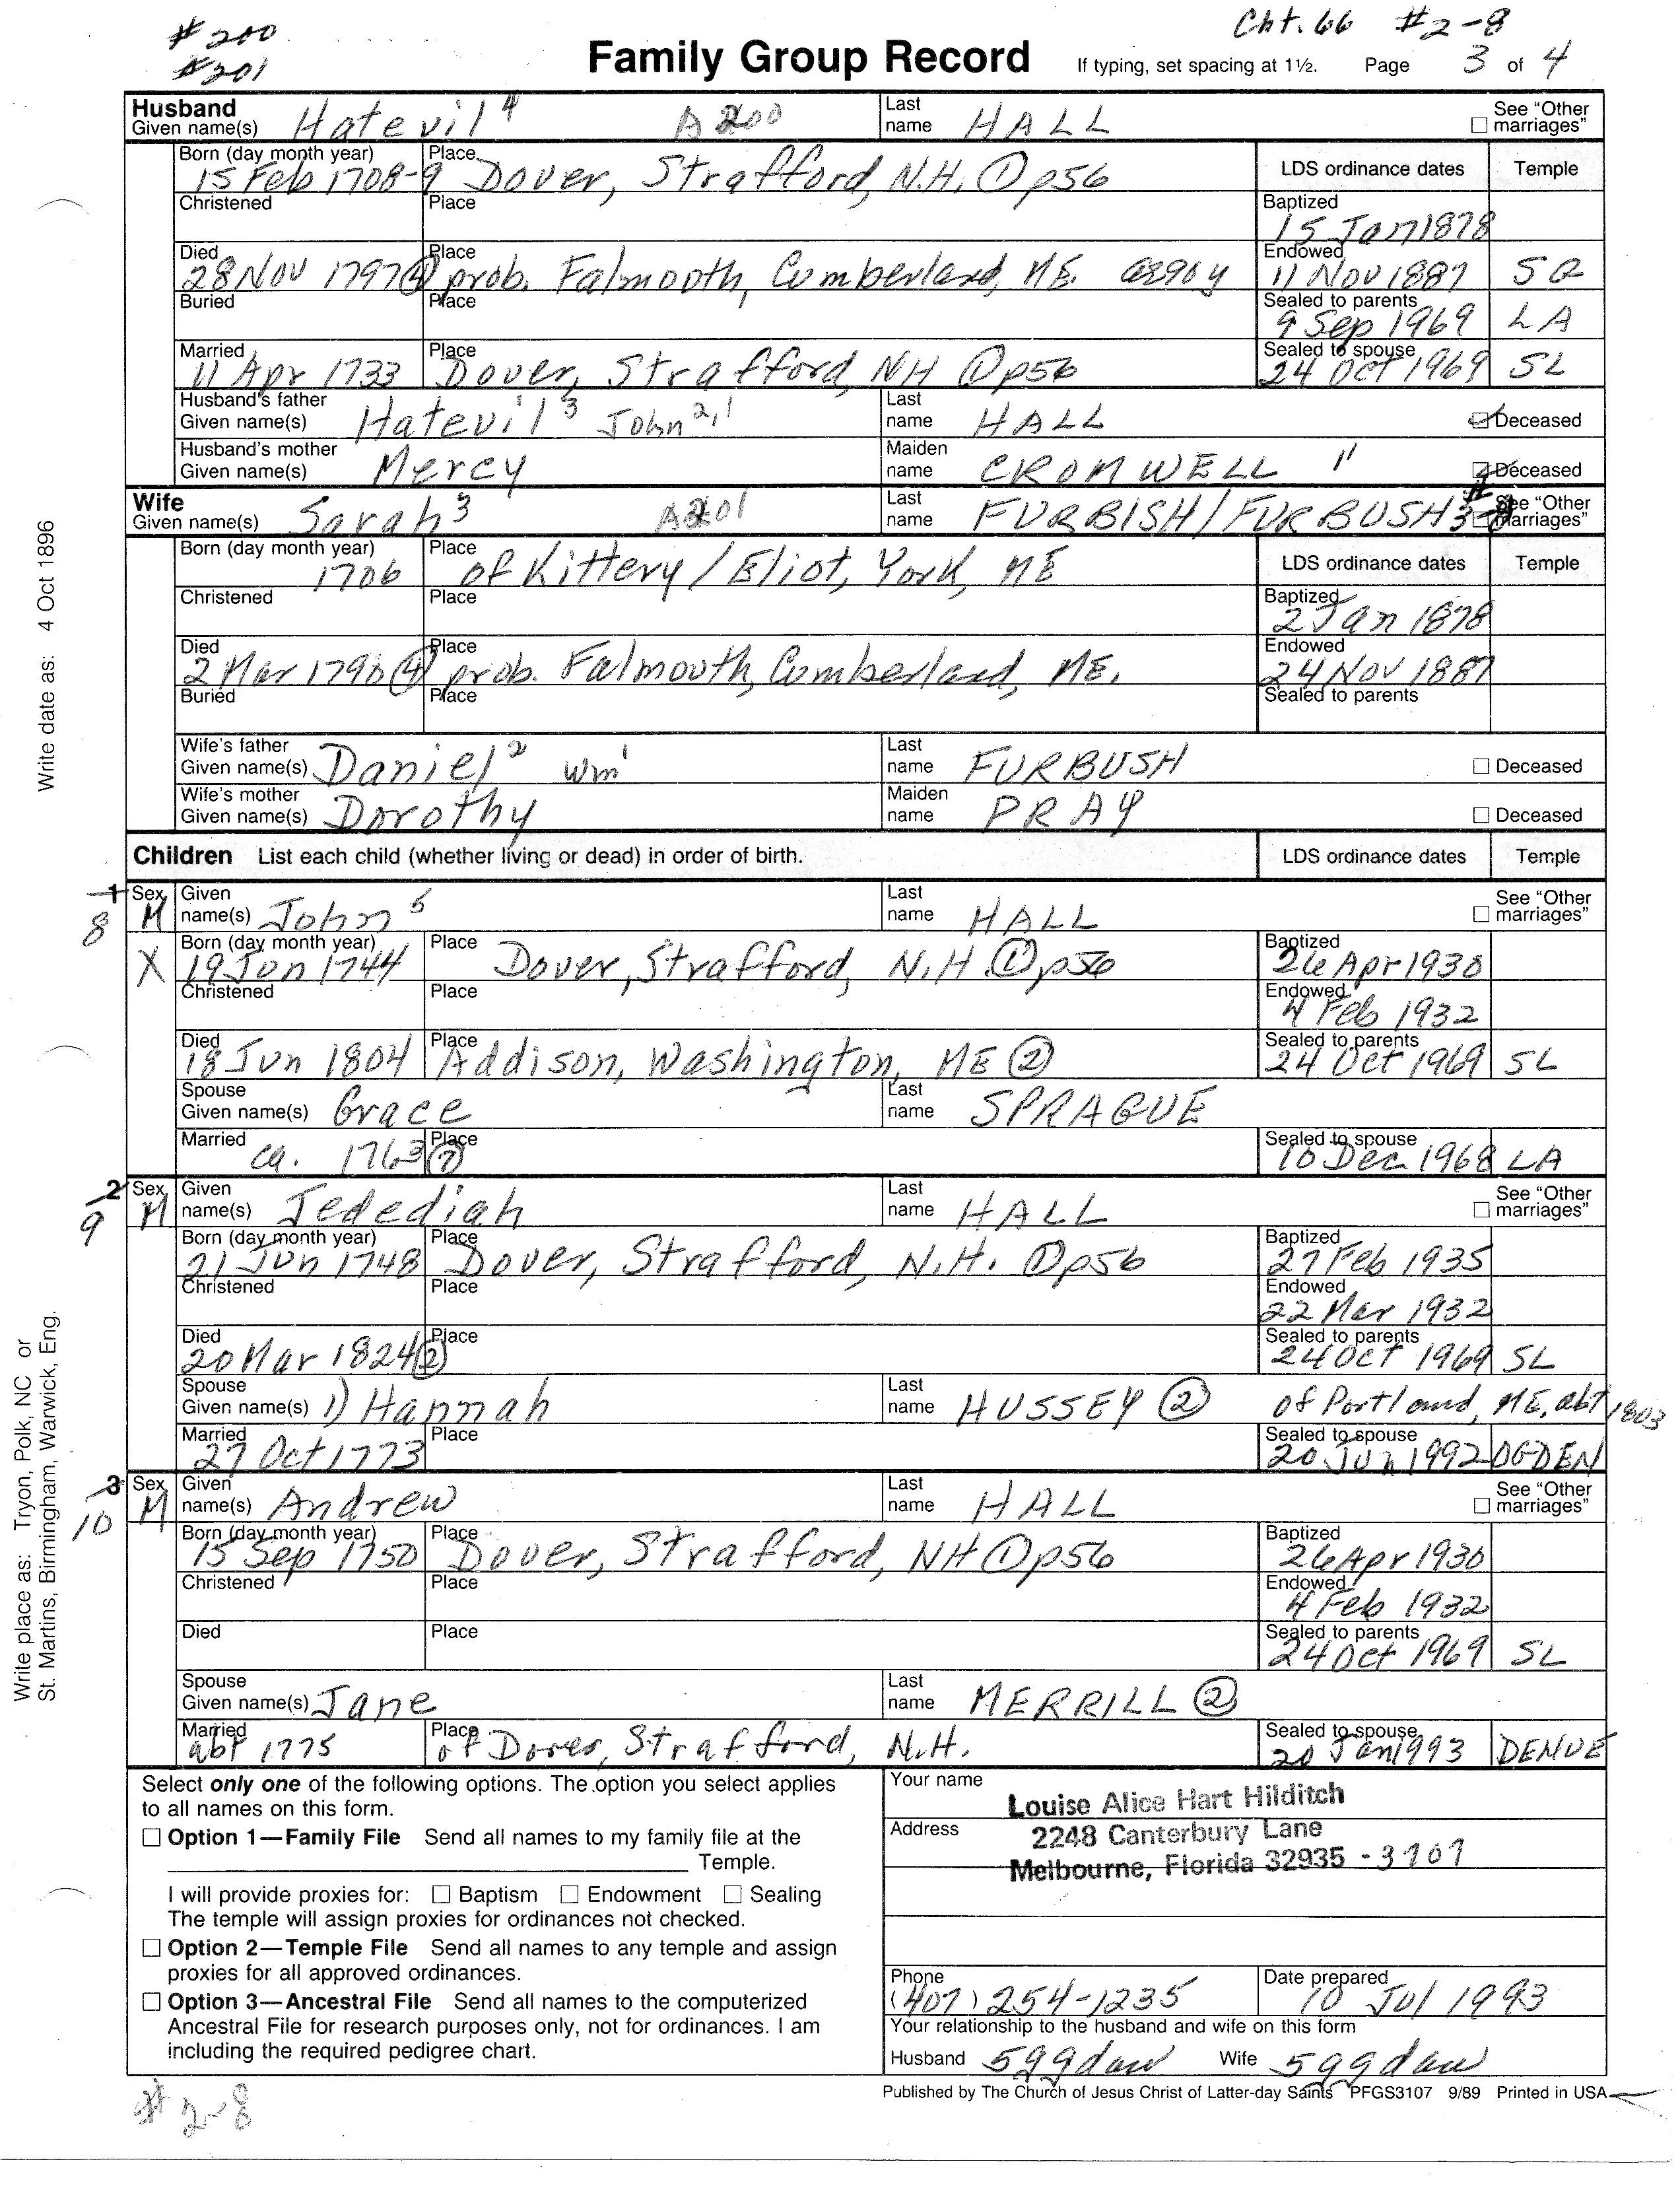 #200
#201
Cht. 66 #2-8
Family Group Record
If typing, set spacing at 1½. Page 3 of 4
Husband
Given name(s) Hatevil⁴ A200 Last name HALL ☐ See "Other marriages"
Born (day month year) 15 Feb 1708-9 Place Dover, Strafford, N.H. ① p56 LDS ordinance dates Temple
Christened Place Baptized 15 Jan 1878
Died 28 Nov 1797 ④ Place prob. Falmouth, Cumberland, ME. Endowed 11 Nov 1887
Buried Place Sealed to parents 9 Sep 1969 LA
Married 11 Apr 1733 Place Dover, Strafford, NH ① p56 Sealed to spouse 24 Oct 1969 SL
Husband's father Given name(s) Hatevil³ John²,¹ Last name HALL ☑ Deceased
Husband's mother Given name(s) Mercy Maiden name CROMWELL " ☑ Deceased
Wife
Given name(s) Sarah³ A201 Last name FURBISH/FURBUSH ☐ See "Other marriages"
Born (day month year) 1706 Place of Kittery/Eliot, York, ME LDS ordinance dates Temple
Christened Place Baptized 2 Jan 1878
Died 2 Mar 1790 ④ Place prob. Falmouth, Cumberland, ME. Endowed 24 Nov 1887
Buried Place Sealed to parents
Wife's father Given name(s) Daniel² Wm¹ Last name FURBUSH ☐ Deceased
Wife's mother Given name(s) Dorothy Maiden name PRAY ☐ Deceased
Children List each child (whether living or dead) in order of birth. LDS ordinance dates Temple
1 8 Sex M Given name(s) John⁵ Last name HALL ☐ See "Other marriages"
X Born (day month year) 19 Jun 1744 Place Dover, Strafford, N.H. ① p56 Baptized 26 Apr 1930
Christened Place Endowed 4 Feb 1932
Died 18 Jun 1804 Place Addison, Washington, ME ② Sealed to parents 24 Oct 1969 SL
Spouse Given name(s) Grace Last name SPRAGUE
Married ca. 1763 ⑦ Place Sealed to spouse 10 Dec 1968 LA
2 9 Sex M Given name(s) Jedediah Last name HALL ☐ See "Other marriages"
Born (day month year) 21 Jun 1748 Place Dover, Strafford, N.H. ① p56 Baptized 27 Feb 1935
Christened Place Endowed 22 Mar 1932
Died 20 Mar 1824 ② Place Sealed to parents 24 Oct 1969 SL
Spouse Given name(s) 1) Hannah Last name HUSSEY ② of Portland, ME, abt 1803
Married 27 Oct 1773 Place Sealed to spouse 20 Jun 1992 OGDEN
3 10 Sex M Given name(s) Andrew Last name HALL ☐ See "Other marriages"
Born (day month year) 15 Sep 1750 Place Dover, Strafford, NH ① p56 Baptized 26 Apr 1930
Christened Place Endowed 4 Feb 1932
Died Place Sealed to parents 24 Oct 1969 SL
Spouse Given name(s) Jane Last name MERRILL ②
Married abt 1775 Place of Dover, Strafford, N.H. Sealed to spouse 20 Jan 1993 DENVE
Select only one of the following options. The option you select applies
to all names on this form.
☐ Option 1—Family File Send all names to my family file at the
Temple.
I will provide proxies for: ☐ Baptism ☐ Endowment ☐ Sealing
The temple will assign proxies for ordinances not checked.
☐ Option 2—Temple File Send all names to any temple and assign
proxies for all approved ordinances.
☐ Option 3—Ancestral File Send all names to the computerized
Ancestral File for research purposes only, not for ordinances. I am
including the required pedigree chart.
Your name Louise Alice Hart Hilditch
Address 2248 Canterbury Lane
Melbourne, Florida 32935 -3707
Phone (407) 254-1235 Date prepared 10 Jul 1993
Your relationship to the husband and wife on this form
Husband 5ggdau Wife 5ggdau
Published by The Church of Jesus Christ of Latter-day Saints PFGS3107 9/89 Printed in USA
#2-8
Write date as: 4 Oct 1896
Write place as: Tryon, Polk, NC or
St. Martins, Birmingham, Warwick, Eng.